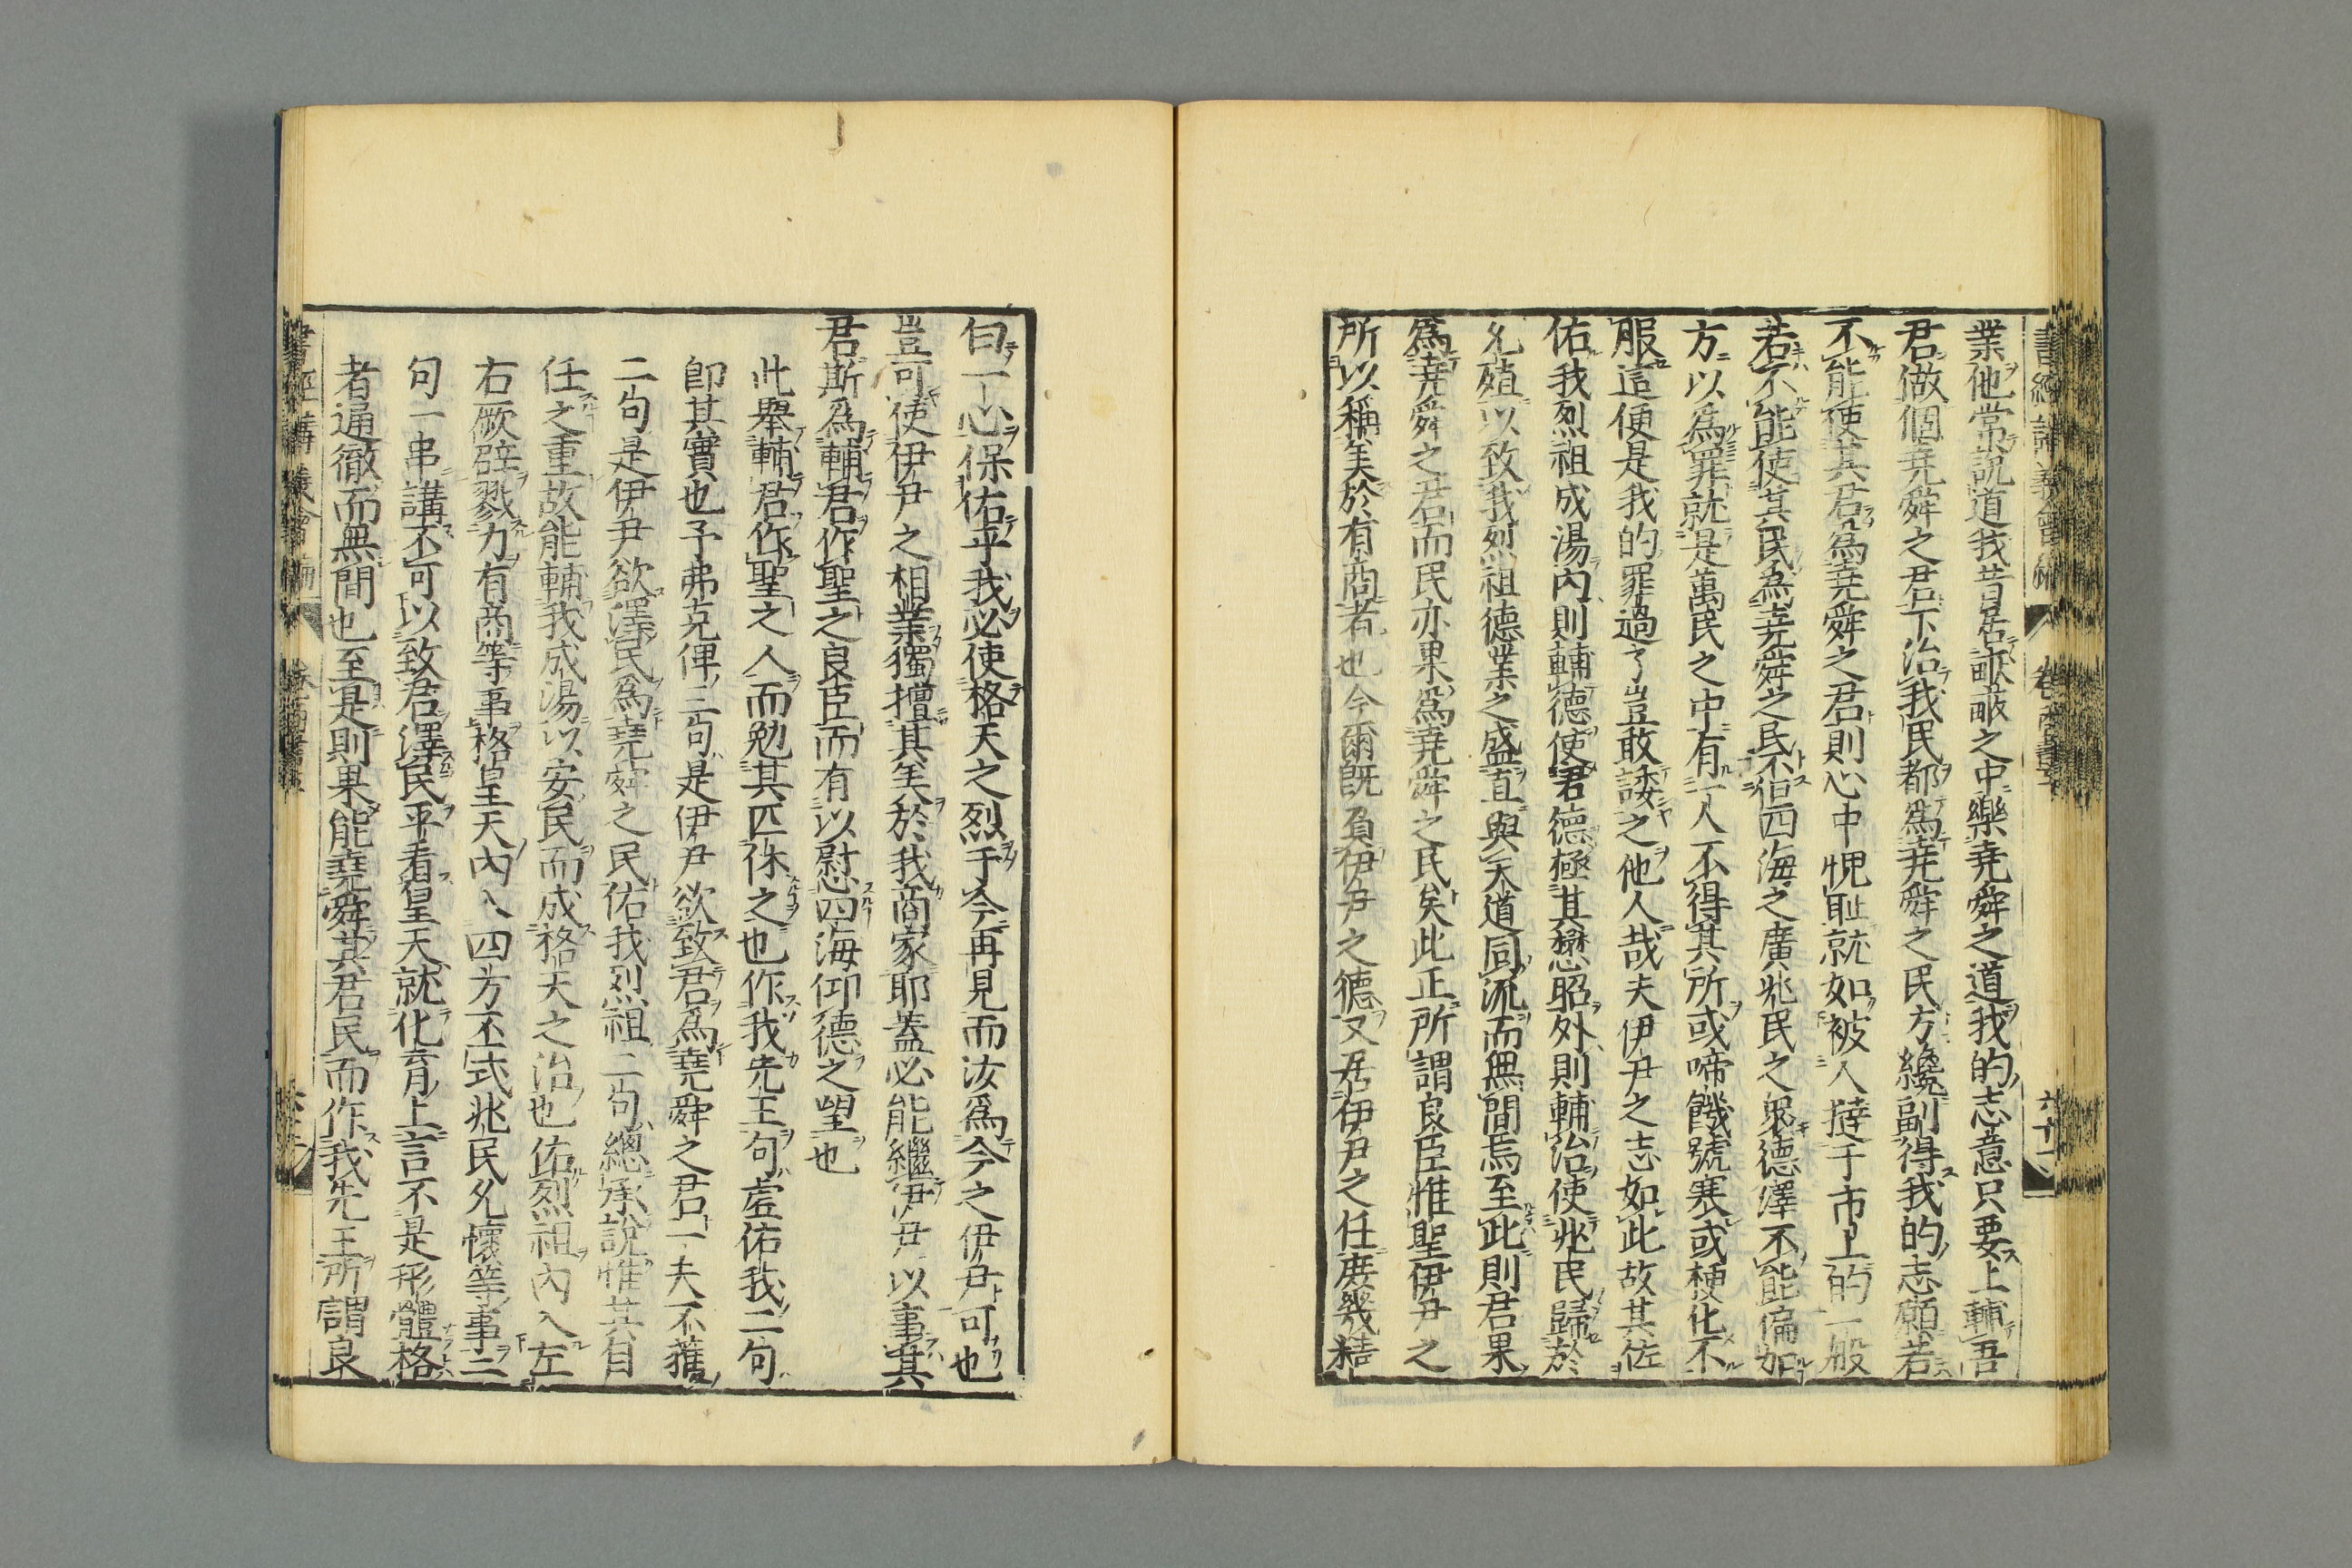 業他常説道我昔居畎畝之中樂堯舜之道我的志意只要上輔吾
君做個堯舜之君下治我民都為堯舜之民方纔副得我的志願若
不能使其君為堯舜之君則心中愧恥就如被人撻于市上的一般
若不能使其民為堯舜之民不但四海之廣兆民之衆德澤不能徧加
方以為罪就是萬民之中有一人不得其所或啼饑號寒或梗化不
服這便是我的罪過了豈敢諉之他人哉夫伊尹之志如此故其佐
佑我烈祖成湯内則輔德使君德極其懋昭外則輔治使兆民歸於
允殖以致我烈祖德業之盛直與天道同流而無間焉至此則君果
為堯舜之君而民亦果為堯舜之民矣此正所謂良臣惟聖伊尹之
所以稱美於有商者也今爾既負伊尹之德又居伊尹之任庶幾精
白一心保佑乎我必使格天之烈于今再見而汝為今之伊尹可也
豈可使伊尹之相業獨擅其美於我商家耶蓋必能繼伊尹以事其
君斯為輔君作聖之良臣而有以慰四海仰德之望也
此舉輔君作聖之人而勉其匹休之也作我先王句虚佑我二句
即其實也予弗克俾三句是伊尹欲致君為堯舜之君一夫不獲
二句是伊尹欲澤民為堯舜之民佑我烈祖二句總承說惟其自
任之重故能輔我成湯以安民而成格天之治也佑烈祖内入左
右厥辟戮力有商等事格皇天内入四方丕式兆民允懷等事二
句一串講不可以致君澤民平看皇天就化育上言不是形體格
者通徹而無間也至是則果能堯舜其君民而作我先王所謂良